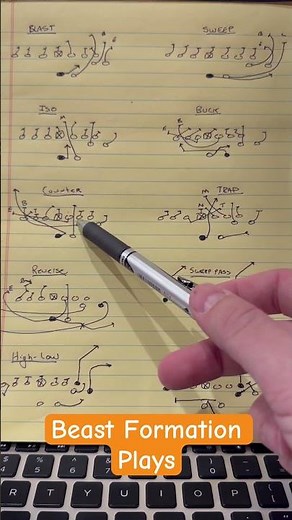 BLAST
SWEEP
ISO
BUCK
Counter
TRAP
Reverse
SWEEP PASS
High-Low
Beast Formation
Plays
R T Y U I O P